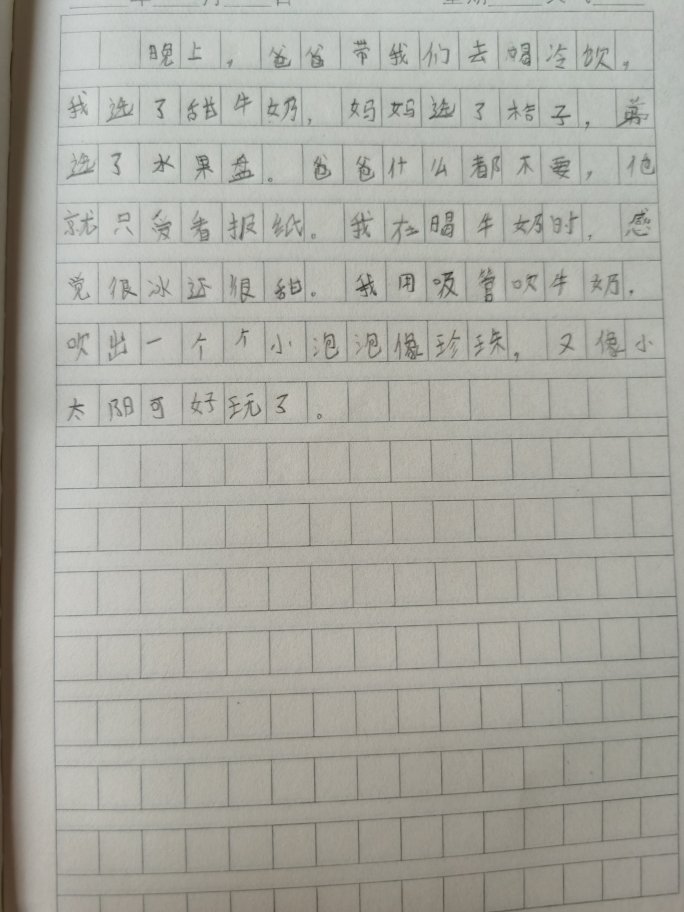 晚上，爸爸带我们去喝冷饮，
我选了甜牛奶，妈妈选了桔子，弟
选了水果盘。爸爸什么都不要，他
就只爱看报纸。我在喝牛奶时，感
觉很冰还很甜。我用吸管吹牛奶，
吹出一个个小泡泡像珍珠，又像小
太阳可好玩了。